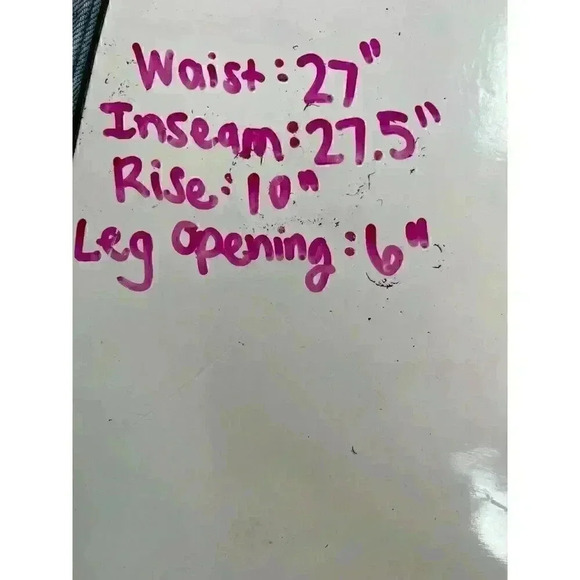 Waist: 27"
Inseam: 27.5"
Rise: 10"
Leg Opening: 6"